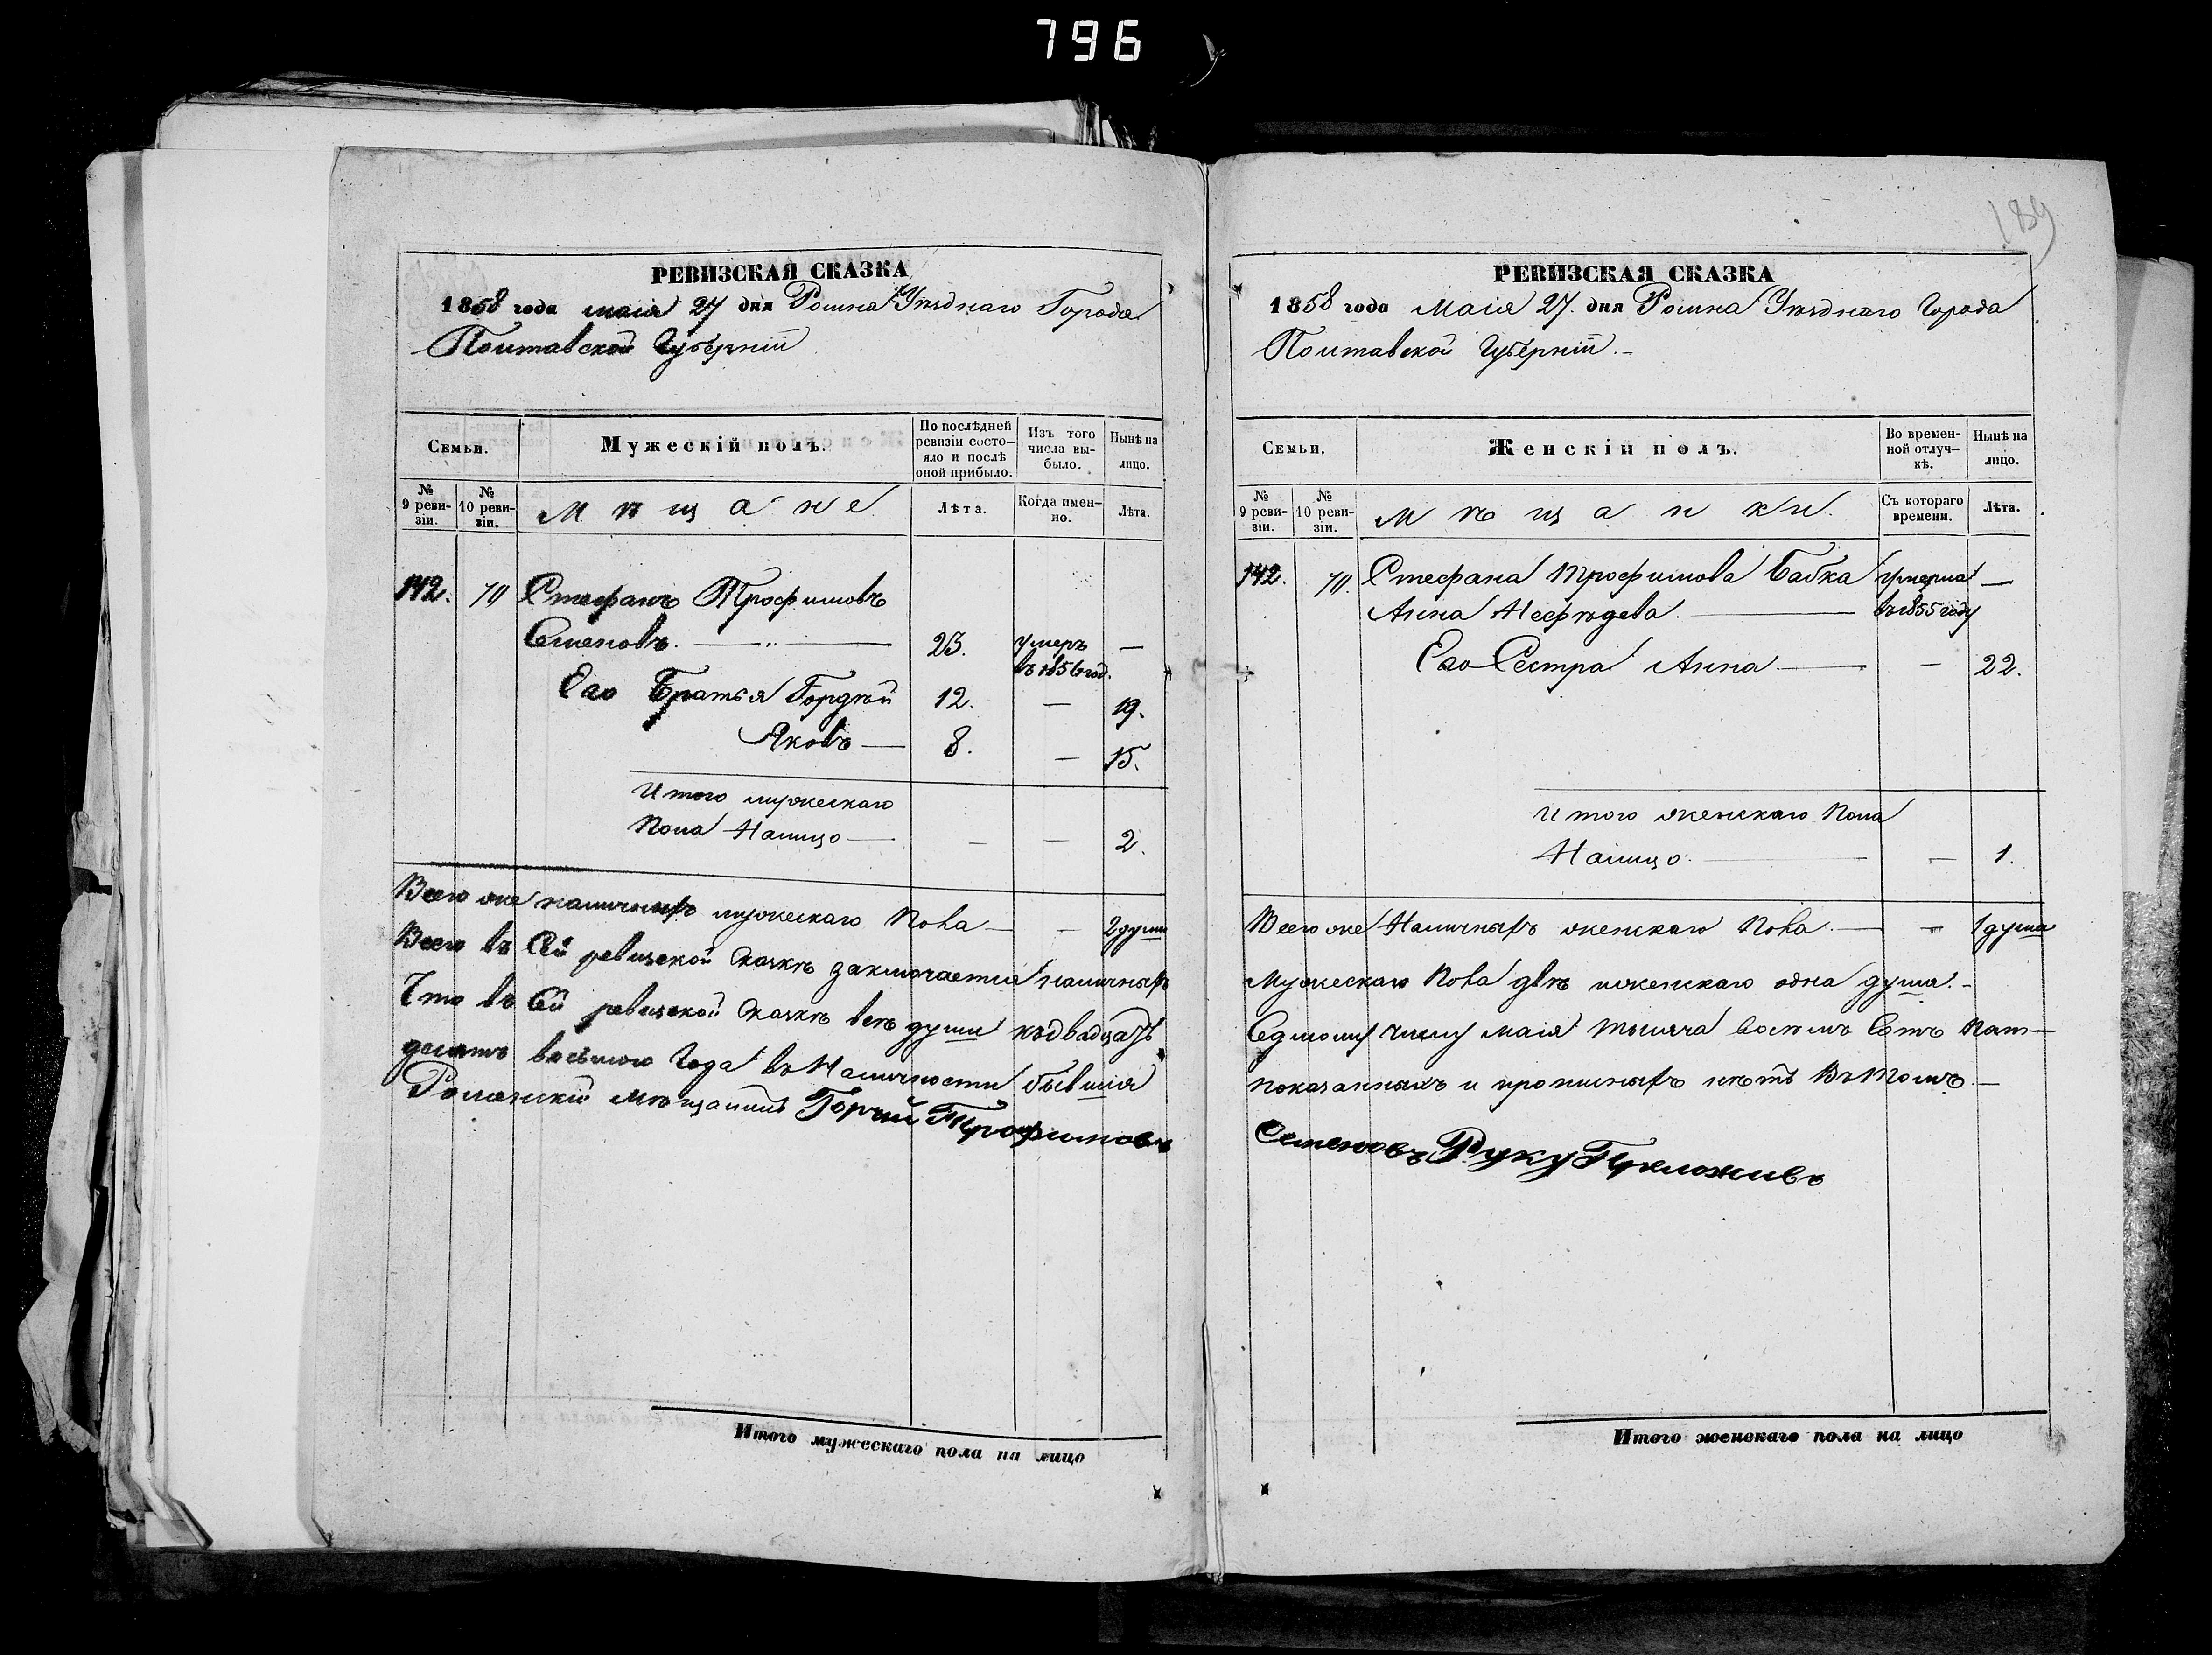 796
189
РЕВИЗСКАЯ СКАЗКА
1858 года маія 27 дня Ромна Уѣзднаго Города
Полтавской Губерніи
Семьи.
Мужескій полъ.
По послѣдней ревизіи состо-
яло и послѣ оной прибыло.
Изъ того числа вы-
было.
Нынѣ на лицо.
№ 9 реви-
зіи.
№ 10 реви-
зіи.
Мѣщане
Лѣта.
Когда имен-
но.
Лѣта.
142. 70 Стефанъ Трофимовъ
Семеновъ. — 23. умеръ —
въ 1856 год.
Его Братья Гордѣй 12. — 19.
Яковъ — 8. — 15.
Итого мужескаго
пола налицо — — — 2.
Всего же наличныхъ мужескаго пола — — 2 души
Всего въ сей ревизской сказкѣ заключается наличныхъ
Что въ сей ревизской сказкѣ всѣ души къ двадцать
десятъ восьмого Года въ Наличности бывшія
Роменскій мѣщанинъ Горчий Трофимовъ
Итого мужескаго пола на лицо
РЕВИЗСКАЯ СКАЗКА
1858 года Маія 27. дня Ромна Уѣзднаго Города
Полтавской Губерніи. –
Семьи.
Женскій полъ.
Во времен-
ной отлуч-
кѣ.
Нынѣ на лицо.
№ 9 реви-
зіи.
№ 10 реви-
зіи.
Мѣщанки.
Съ котораго времени.
Лѣта.
142. 70. Стефана Трофимова Бабка умерла —
Анна Нефѣдева. — въ 1855 году
Его Сестра Анна — — 22.
Итого женскаго пола
Налицо. — — 1.
Всего же Наличныхъ женскаго пола. — — 1 душа
Мужескаго пола двѣ и женскаго одна душа. –
Седмому числу маія тысяча восемъ сотъ пят—
показанныхъ и прописныхъ нѣтъ Въ томъ. —
Семеновъ Руку Приложивъ
Итого женскаго пола на лицо